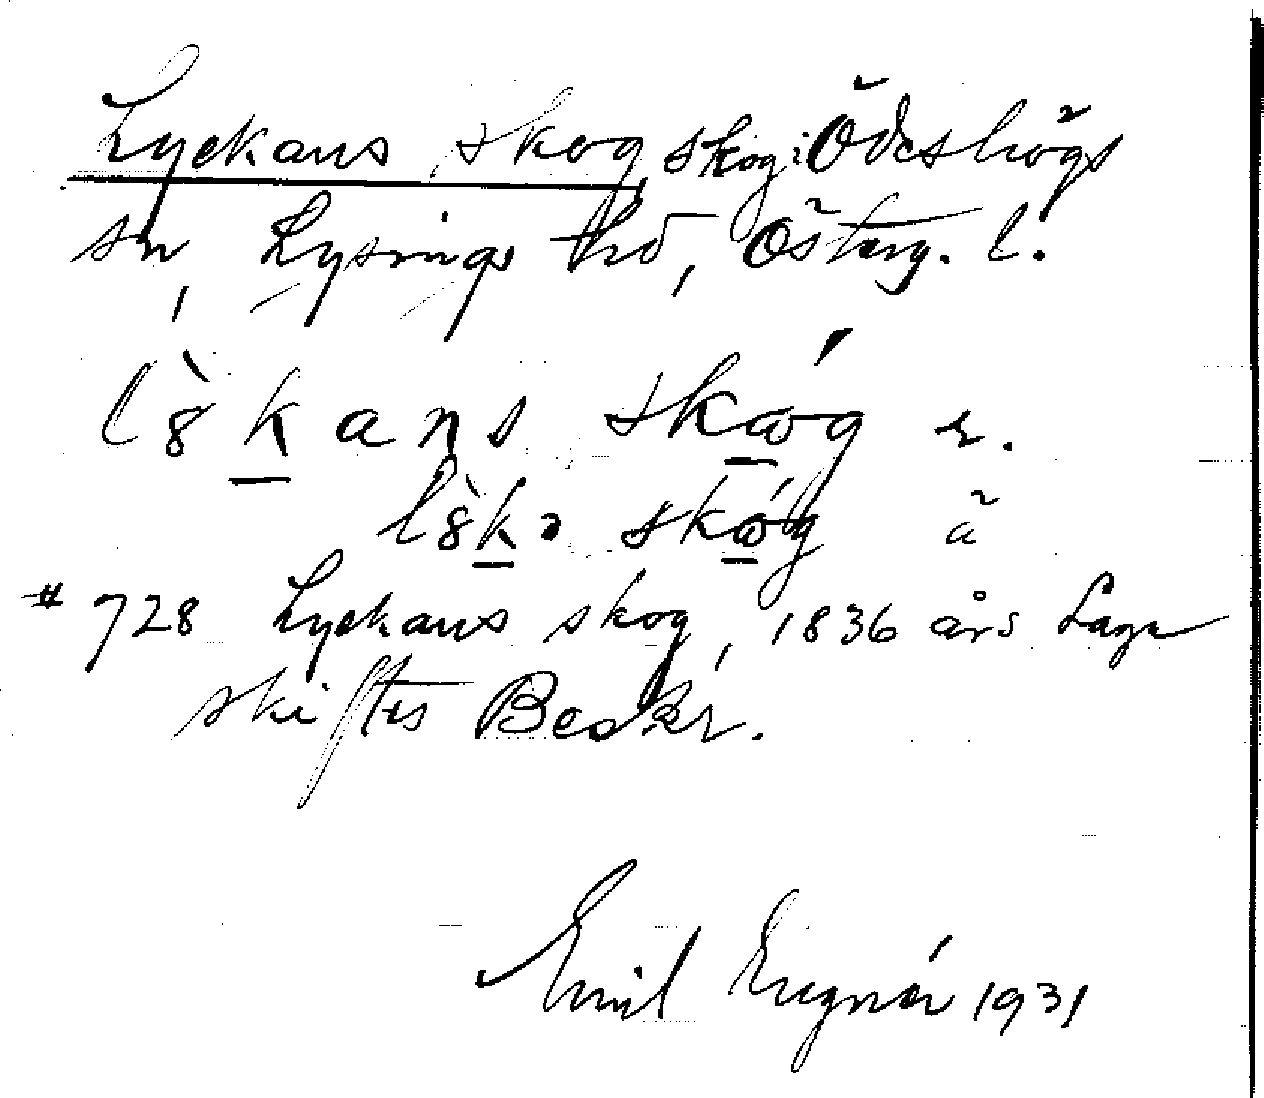 Lyckans skog, skog i Ödeshögs
sn, Lysings hd, Österg. l.
lȣ̀kans skǿg r.
lȣ̀kə skǿg ã
# 728 Lyckans skog, 1836 års Laga
skiftes Beskr.
Emil 1931